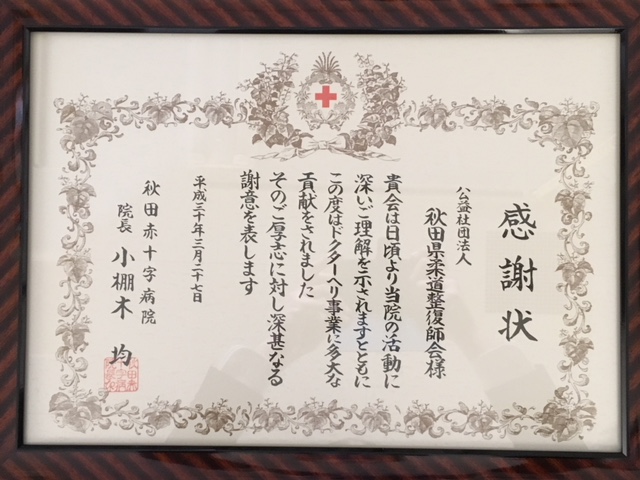 感謝状
公益社団法人
秋田県柔道整復師会様
貴会は日頃より当院の活動に
深いご理解を示されますとともに
この度はドクターヘリ事業に多大な
貢献をされました
そのご厚志に対し深甚なる
謝意を表します
平成三十年三月二十七日
秋田赤十字病院
院長 小棚木 均